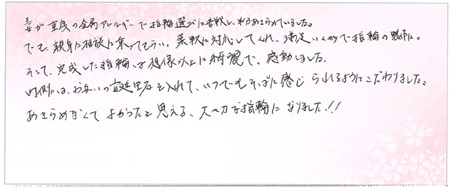 妻が重度の金属アレルギーで指輪選びに苦戦し、半分あきらめていました。
でも、親身に相談に乗ってもらい、柔軟に対応してくれ、満足いくかたちで指輪の製作に。
そして、完成した指輪は想像以上に綺麗で、感動しました。
内側には、お互いの誕生石を入れて、いつでもそばに感じられるようにこだわりました。
あきらめなくてよかったと思える、大切な指輪になりました!!